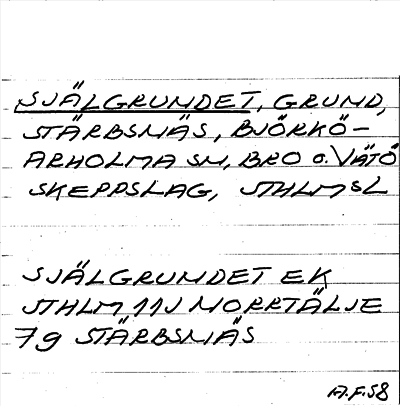 SJÄLGRUNDET, GRUND,
STÄRBSNÄS, BJÖRKÖ-
ARHOLMA SN, BRO o. VÄTÖ
SKEPPSLAG, STHLMSL
SJÄLGRUNDET EK
STHLM 11J NORRTÄLJE
7g STÄRBSNÄS
A.F.58